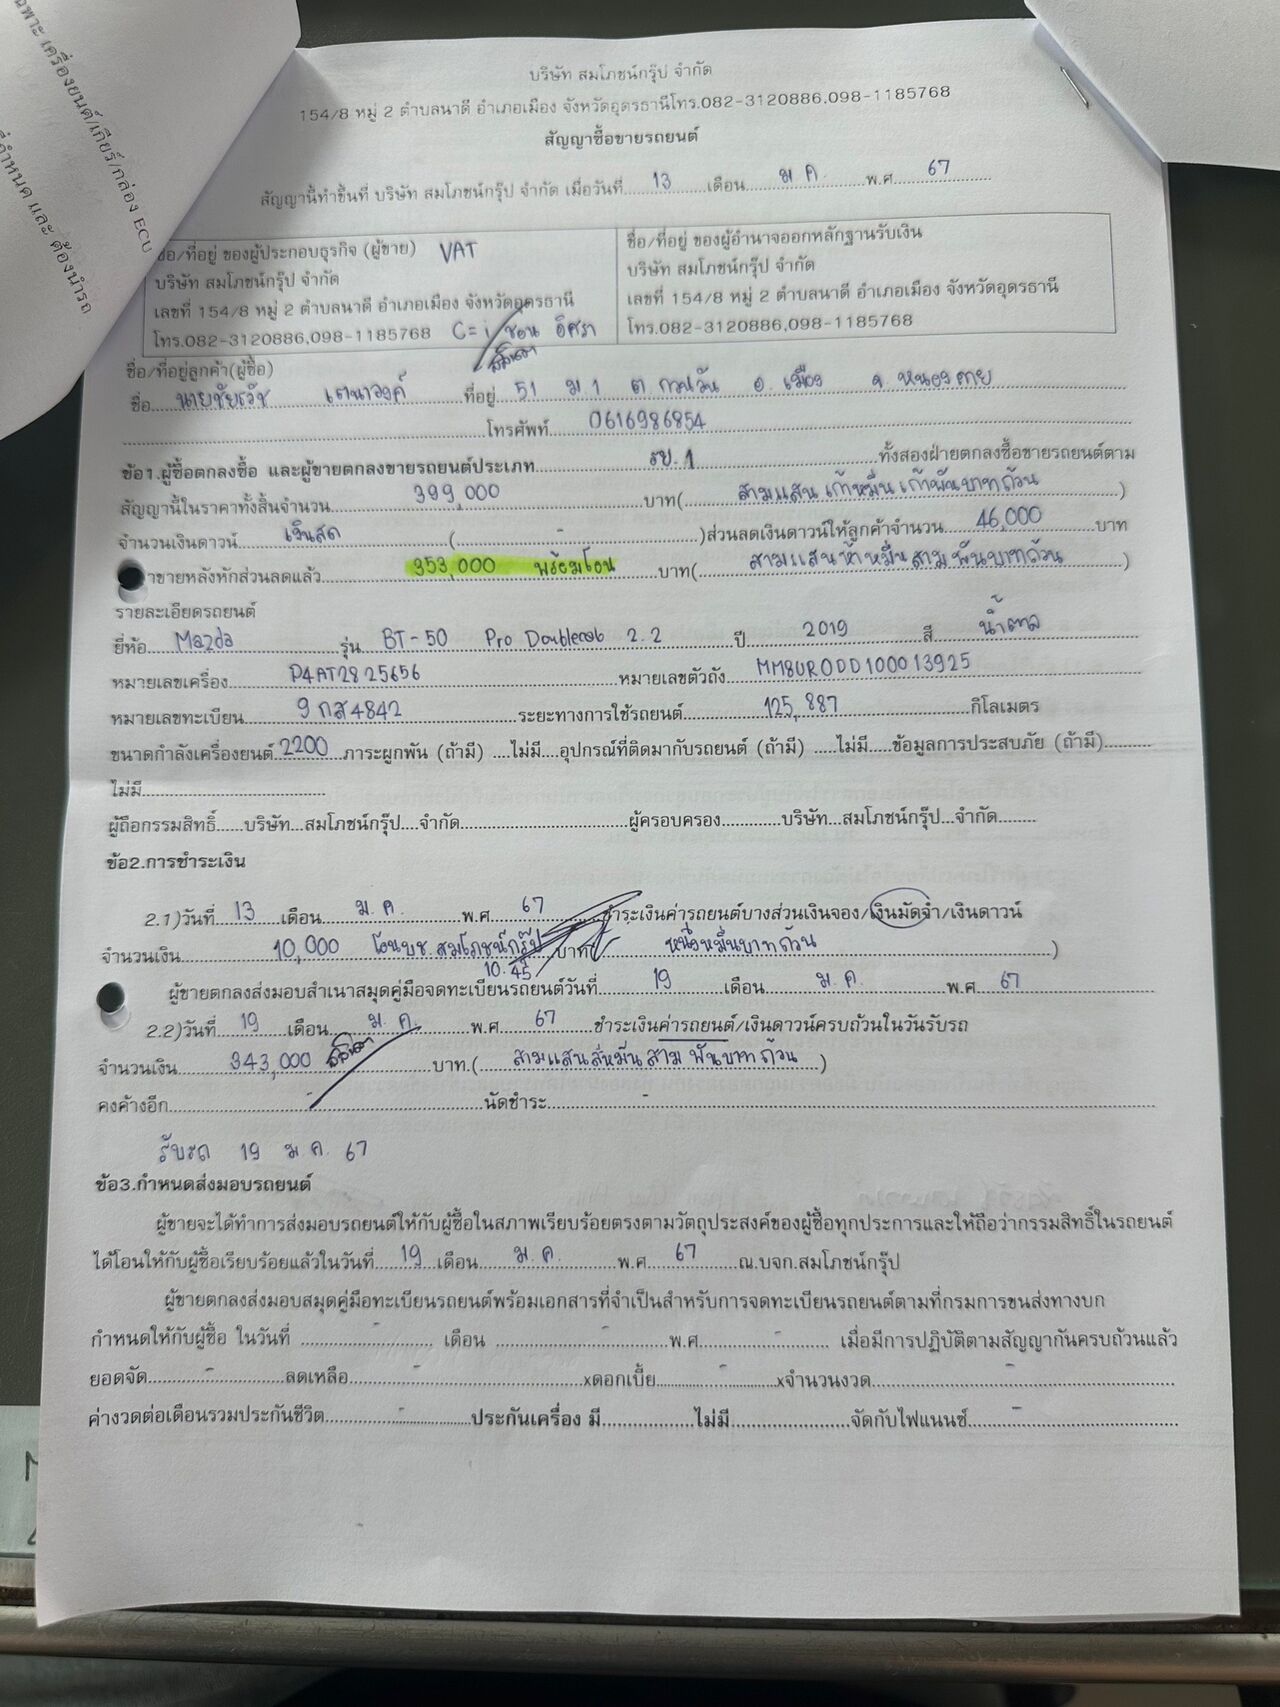 ฉพาะ เครื่องยนต์/เกียร์/กล่อง ECU
กำหนด และ ต้องนำรถ
บริษัท สมโภชน์กรุ๊ป จำกัด
154/8 หมู่ 2 ตำบลนาดี อำเภอเมือง จังหวัดอุดรธานีโทร.082-3120886,098-1185768
สัญญาซื้อขายรถยนต์
สัญญานี้ทำขึ้นที่ บริษัท สมโภชน์กรุ๊ป จำกัด เมื่อวันที่ 13 เดือน ม ค. พ.ศ 67
ชื่อ/ที่อยู่ ของผู้ประกอบธุรกิจ (ผู้ขาย) VAT
บริษัท สมโภชน์กรุ๊ป จำกัด
เลขที่ 154/8 หมู่ 2 ตำบลนาดี อำเภอเมือง จังหวัดอุดรธานี
โทร.082-3120886,098-1185768
ชื่อ/ที่อยู่ ของผู้อำนาจออกหลักฐานรับเงิน
บริษัท สมโภชน์กรุ๊ป จำกัด
เลขที่ 154/8 หมู่ 2 ตำบลนาดี อำเภอเมือง จังหวัดอุดรธานี
โทร.082-3120886,098-1185768
ชื่อ/ที่อยู่ลูกค้า(ผู้ซื้อ)
ชื่อ ที่อยู่ 51 ม 1 ต กวนวัน อ. เมือง จ. หนองคาย
โทรศัพท์ 0616986854
ข้อ1.ผู้ซื้อตกลงซื้อ และผู้ขายตกลงขายรถยนต์ประเภท รย. 1 ทั้งสองฝ่ายตกลงซื้อขายรถยนต์ตาม
สัญญานี้ในราคาทั้งสิ้นจำนวน 399,000 บาท( สามแสนเก้าหมื่นเก้าพันบาทถ้วน )
จำนวนเงินดาวน์ เงินสด ( - )ส่วนลดเงินดาวน์ให้ลูกค้าจำนวน 46,000 บาท
าขายหลังหักส่วนลดแล้ว 353,000 พร้อมโอน บาท( สามแสนห้าหมื่นสามพันบาทถ้วน )
รายละเอียดรถยนต์
ยี่ห้อ Mazda รุ่น BT-50 Pro Doublecab 2.2 ปี 2019 สี น้ำตาล
หมายเลขเครื่อง P4AT2825656 หมายเลขตัวถัง MM8UR0DD100013925
หมายเลขทะเบียน 9 กส4842 ระยะทางการใช้รถยนต์ 125,887 กิโลเมตร
ขนาดกำลังเครื่องยนต์ 2200 ภาระผูกพัน (ถ้ามี) ....ไม่มี....อุปกรณ์ที่ติดมากับรถยนต์ (ถ้ามี) .....ไม่มี.....ข้อมูลการประสบภัย (ถ้ามี)
ไม่มี
ผู้ถือกรรมสิทธิ์......บริษัท...สมโภชน์กรุ๊ป....จำกัด ผู้ครอบครอง บริษัท...สมโภชน์กรุ๊ป...จำกัด
ข้อ2.การชำระเงิน
2.1)วันที่ 13 เดือน ม. ค. พ.ศ 67 ชำระเงินค่ารถยนต์บางส่วนเงินจอง/เงินมัดจำ/เงินดาวน์
จำนวนเงิน 10,000 โอนบช.สมโภชน์กรุ๊ป บาท( หนึ่งหมื่นบาทถ้วน )
10.45
ผู้ขายตกลงส่งมอบสำเนาสมุดคู่มือจดทะเบียนรถยนต์วันที่ 19 เดือน ม. ค. พ.ศ 67
2.2)วันที่ 19 เดือน ม. ค. พ.ศ 67 ชำระเงินค่ารถยนต์/เงินดาวน์ครบถ้วนในวันรับรถ
จำนวนเงิน 343,000 บาท.( สามแสนสี่หมื่นสามพันบาทถ้วน )
คงค้างอีก - นัดชำระ -
รับรถ 19 ม ค. 67
ข้อ3.กำหนดส่งมอบรถยนต์
ผู้ขายจะได้ทำการส่งมอบรถยนต์ให้กับผู้ซื้อในสภาพเรียบร้อยตรงตามวัตถุประสงค์ของผู้ซื้อทุกประการและให้ถือว่ากรรมสิทธิ์ในรถยนต์
ได้โอนให้กับผู้ซื้อเรียบร้อยแล้วในวันที่ 19 เดือน ม. ค. พ.ศ 67 ณ.บจก.สมโภชน์กรุ๊ป
ผู้ขายตกลงส่งมอบสมุดคู่มือทะเบียนรถยนต์พร้อมเอกสารที่จำเป็นสำหรับการจดทะเบียนรถยนต์ตามที่กรมการขนส่งทางบก
กำหนดให้กับผู้ซื้อ ในวันที่ - เดือน - พ.ศ - เมื่อมีการปฏิบัติตามสัญญากันครบถ้วนแล้ว
ยอดจัด - ลดเหลือ - xดอกเบี้ย - xจำนวนงวด -
ค่างวดต่อเดือนรวมประกันชีวิต - ประกันเครื่อง มี ไม่มี จัดกับไฟแนนซ์ -